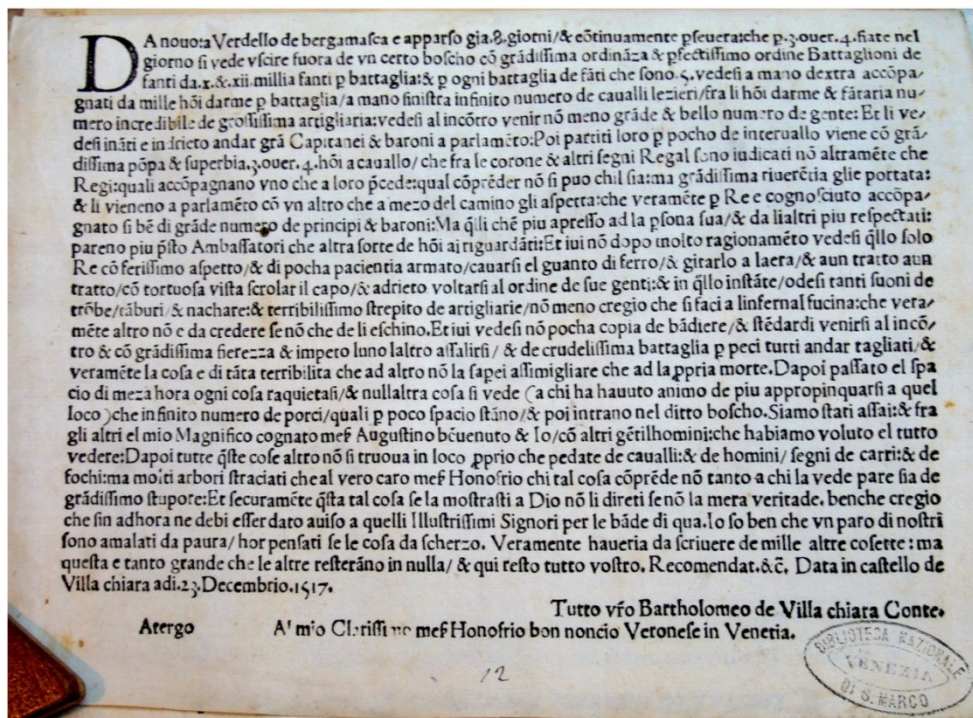 DA novo:a Verdello de bergamasca e apparso gia.8.giorni/& cõtinuamente pseuera:che p.3.ouer.4.fiate nel
giorno si vede vscire fuora de vn certo boscho cõ grãdissima ordinãza & pfectissimo ordine Battaglioni de
fanti da.x.& .xii.millia fanti p battaglia:& p ogni battaglia de fãti che sono.5.vedesi a mano dextra accõpa/
gnati da mille hõi darme p battaglia/a mano sinistra infinito numero de caualli lezieri/fra li hõi darme & fãtaria nu/
mero incredibile de grossissima artigliaria:vedesi al incõtro venir nõ meno grãde & bello numero de gente:Et li ve/
desi inãti e indrieto andar grã Capitanei & baroni a parlamẽto:Poi partiti loro p pocho de interuallo viene cõ grã/
dissima põpa & superbia.3.ouer.4.hõi a cauallo/che fra le corone & altri segni Regal sono iudicati nõ altramẽte che
Regi:quali accõpagnano vno che a loro pcede:qual cõprẽder nõ si puo chil sia:ma grãdissima riuerẽtia glie portata:
& li vieneno a parlamẽto cõ vn altro che a mezo del camino gli aspetta:che veramẽte p Re e cognosciuto accõpa/
gnato si bẽ di grãde numero de principi & baroni:Ma q̃li chẽ piu apresso ad la psona sua/& da lialtri piu respectati:
pareno piu p̃sto Ambassatori che altra sorte de hõi ai riguardãti:Et iui nõ dopo molto ragionamẽto vedesi q̃llo solo
Re cõ ferissimo aspetto/& di pocha pacientia armato/cauarsi el guanto di ferro/& gitarlo a laera/& aun tratto aun
tratto/cõ tortuosa vista scrolar il capo/& adrieto voltarsi al ordine de sue genti:& in q̃llo instãte/odesi tanti suoni de
trõbe/tãburi/& nachare:& terribilissimo strepito de artigliarie/nõ meno cregio che si faci a linfernal fucina:che vera/
mẽte altro nõ e da credere se nõ che de li eschino.Et iui vedesi nõ pocha copia de bãdiere/& stẽdardi venirsi al incõ/
tro & cõ grãdissima fierezza & impeto luno laltro assalirsi/ & de crudelissima battaglia p peci tutti andar tagliati/&
veramẽte la cosa e di tãta terribilita che ad altro nõ la sapei assimigliare che ad la ppria morte.Dapoi passato el spa
cio di meza hora ogni cosa raquietasi/& nullaltra cosa si vede (a chi ha hauuto animo de piu appropinquarsi a quel
loco) che infinito numero de porci/quali p poco spacio stãno/& poi intrano nel ditto boscho.Siamo stati assai:& fra
gli altri el mio Magnifico cognato mes̃ Augustino bẽuenuto & Io/cõ altri gẽtilhomini:che habiamo voluto el tutto
vedere:Dapoi tutte q̃ste cose altro nõ si truoua in loco pprio che pedate de caualli:& de homini/segni de carri:& de
fochi:ma molti arbori straciati che al vero caro mes̃ Honofrio chi tal cosa cõprẽde nõ tanto a chi la vede pare sia de
grãdissimo stupore:Et securamẽte q̃sta tal cosa se la mostrasti a Dio nõ li direti se nõ la mera veritade. benche cregio
che sin adhora ne debi esser dato auiso a quelli Illustrissimi Signori per le bãde di qua.Io so ben che vn paro di nostri
sono amalati da paura/hor pensati se le cosa da scherzo. Veramente haueria da scriuere de mille altre cosette : ma
questa e tanto grande che le altre resterãno in nulla/ & qui resto tutto vostro. Recomendat.&c̃. Data in castello de
Villa chiara adi.23.Decembrio.1517.
Tutto vr̃o Bartholomeo de Villa chiara Conte.
Atergo Al mio Clarissimo mes̃ Honofrio bon noncio Veronese in Venetia.
12
BIBLIOTECA NAZIONALE
VENEZIA
DI S. MARCO